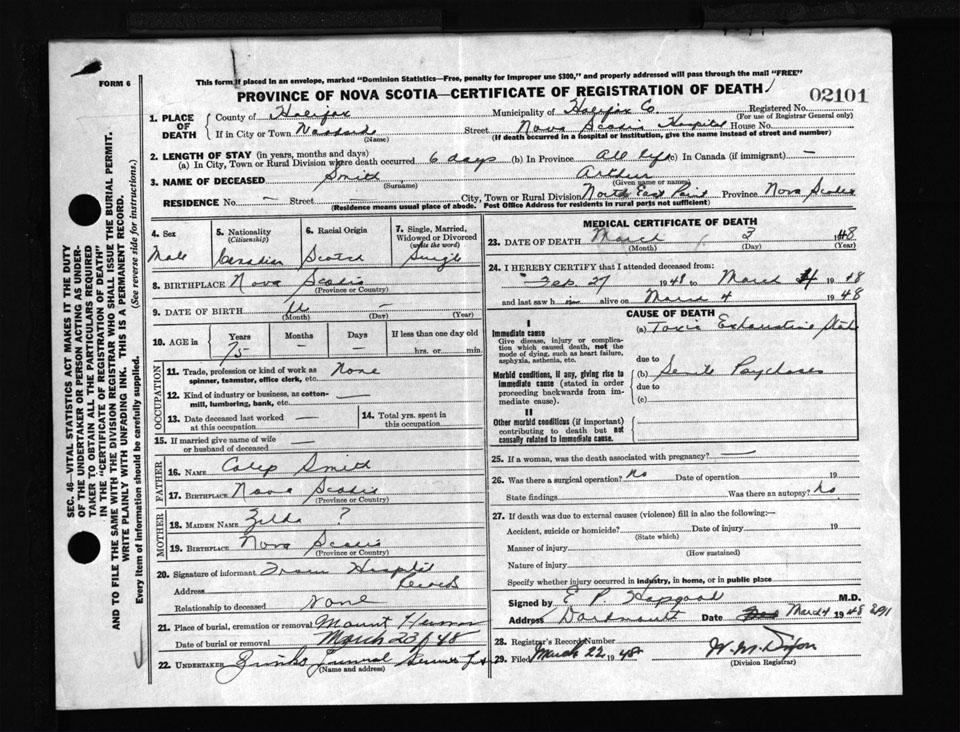 FORM 6
This form if placed in an envelope, marked "Dominion Statistics—Free, penalty for improper use $300," and properly addressed will pass through the mail "FREE"
PROVINCE OF NOVA SCOTIA—CERTIFICATE OF REGISTRATION OF DEATH
02101
1. PLACE OF DEATH
County of Halifax Municipality of Halifax Co. Registered No.
(For use of Registrar General only)
If in City or Town Street Nova Scotia Hospital House No.
(Name) (If death occurred in a hospital or institution, give the name instead of street and number)
2. LENGTH OF STAY (in years, months and days)
(a) In City, Town or Rural Division where death occurred 6 days (b) In Province All life (c) In Canada (if immigrant) —
3. NAME OF DECEASED Smith Arthur
(Surname) (Given name or names)
RESIDENCE No. — Street — City, Town or Rural Division North East Point Province Nova Scotia
(Residence means usual place of abode. Post Office Address for residents in rural parts not sufficient)
4. Sex 5. Nationality (Citizenship) 6. Racial Origin 7. Single, Married, Widowed or Divorced (write the word)
Male Canadian Scotch Single
8. BIRTHPLACE Nova Scotia
(Province or Country)
9. DATE OF BIRTH —
(Month) (Day)
10. AGE in Years Months Days If less than one day old
75 — — hrs. or min.
OCCUPATION
11. Trade, profession or kind of work as spinner, teamster, office clerk, etc. None
12. Kind of industry or business, as cotton-mill, lumbering, bank, etc. —
13. Date deceased last worked at this occupation —
14. Total yrs. spent in this occupation
15. If married give name of wife or husband of deceased —
FATHER
16. NAME Smith
17. BIRTHPLACE Nova Scotia
(Province or Country)
MOTHER
18. MAIDEN NAME Zilda ?
19. BIRTHPLACE Nova Scotia
(Province or Country)
20. Signature of informant From Hospital
Address Records
Relationship to deceased None
21. Place of burial, cremation or removal Mount Hermon
Date of burial or removal March 23/48
22. UNDERTAKER Funeral Service
(Name and address)
MEDICAL CERTIFICATE OF DEATH
23. DATE OF DEATH March 3 1948
(Month) (Day) (Year)
24. I HEREBY CERTIFY that I attended deceased from:
Feb 27 1948 to March 4 1948
and last saw him alive on March 4 1948
CAUSE OF DEATH
I
Immediate cause
Give disease, injury or complication which caused death, not the mode of dying, such as heart failure, asphyxia, asthenia, etc.
(a) Toxic Exhaustive State
due to
Morbid conditions, if any, giving rise to immediate cause (stated in order proceeding backwards from immediate cause).
(b) Senile Psychosis
due to
(c)
II
Other morbid conditions (if important) contributing to death but not causally related to immediate cause.
25. If a woman, was the death associated with pregnancy? —
26. Was there a surgical operation? No Date of operation 19
State findings Was there an autopsy? No.
27. If death was due to external causes (violence) fill in also the following:—
Accident, suicide or homicide? Date of injury 19
(State which)
Manner of injury
(How sustained)
Nature of injury
Specify whether injury occurred in industry, in home, or in public place
Signed by E P. Hopgood M.D.
Address Dartmouth Date March 4 1948 291
28. Registrar's Record Number
29. Filed March 22 1948 W. M. Dixon
(Division Registrar)
SEC. 46—VITAL STATISTICS ACT MAKES IT THE DUTY
OF THE UNDERTAKER OR PERSON ACTING AS UNDER-
TAKER TO OBTAIN ALL THE PARTICULARS REQUIRED
IN THE "CERTIFICATE OF REGISTRATION OF DEATH"
AND TO FILE THE SAME WITH THE DIVISION REGISTRAR WHO SHALL ISSUE THE BURIAL PERMIT.
WRITE PLAINLY WITH UNFADING INK. THIS IS A PERMANENT RECORD.
Every item of information should be carefully supplied. (See reverse side for instructions.)